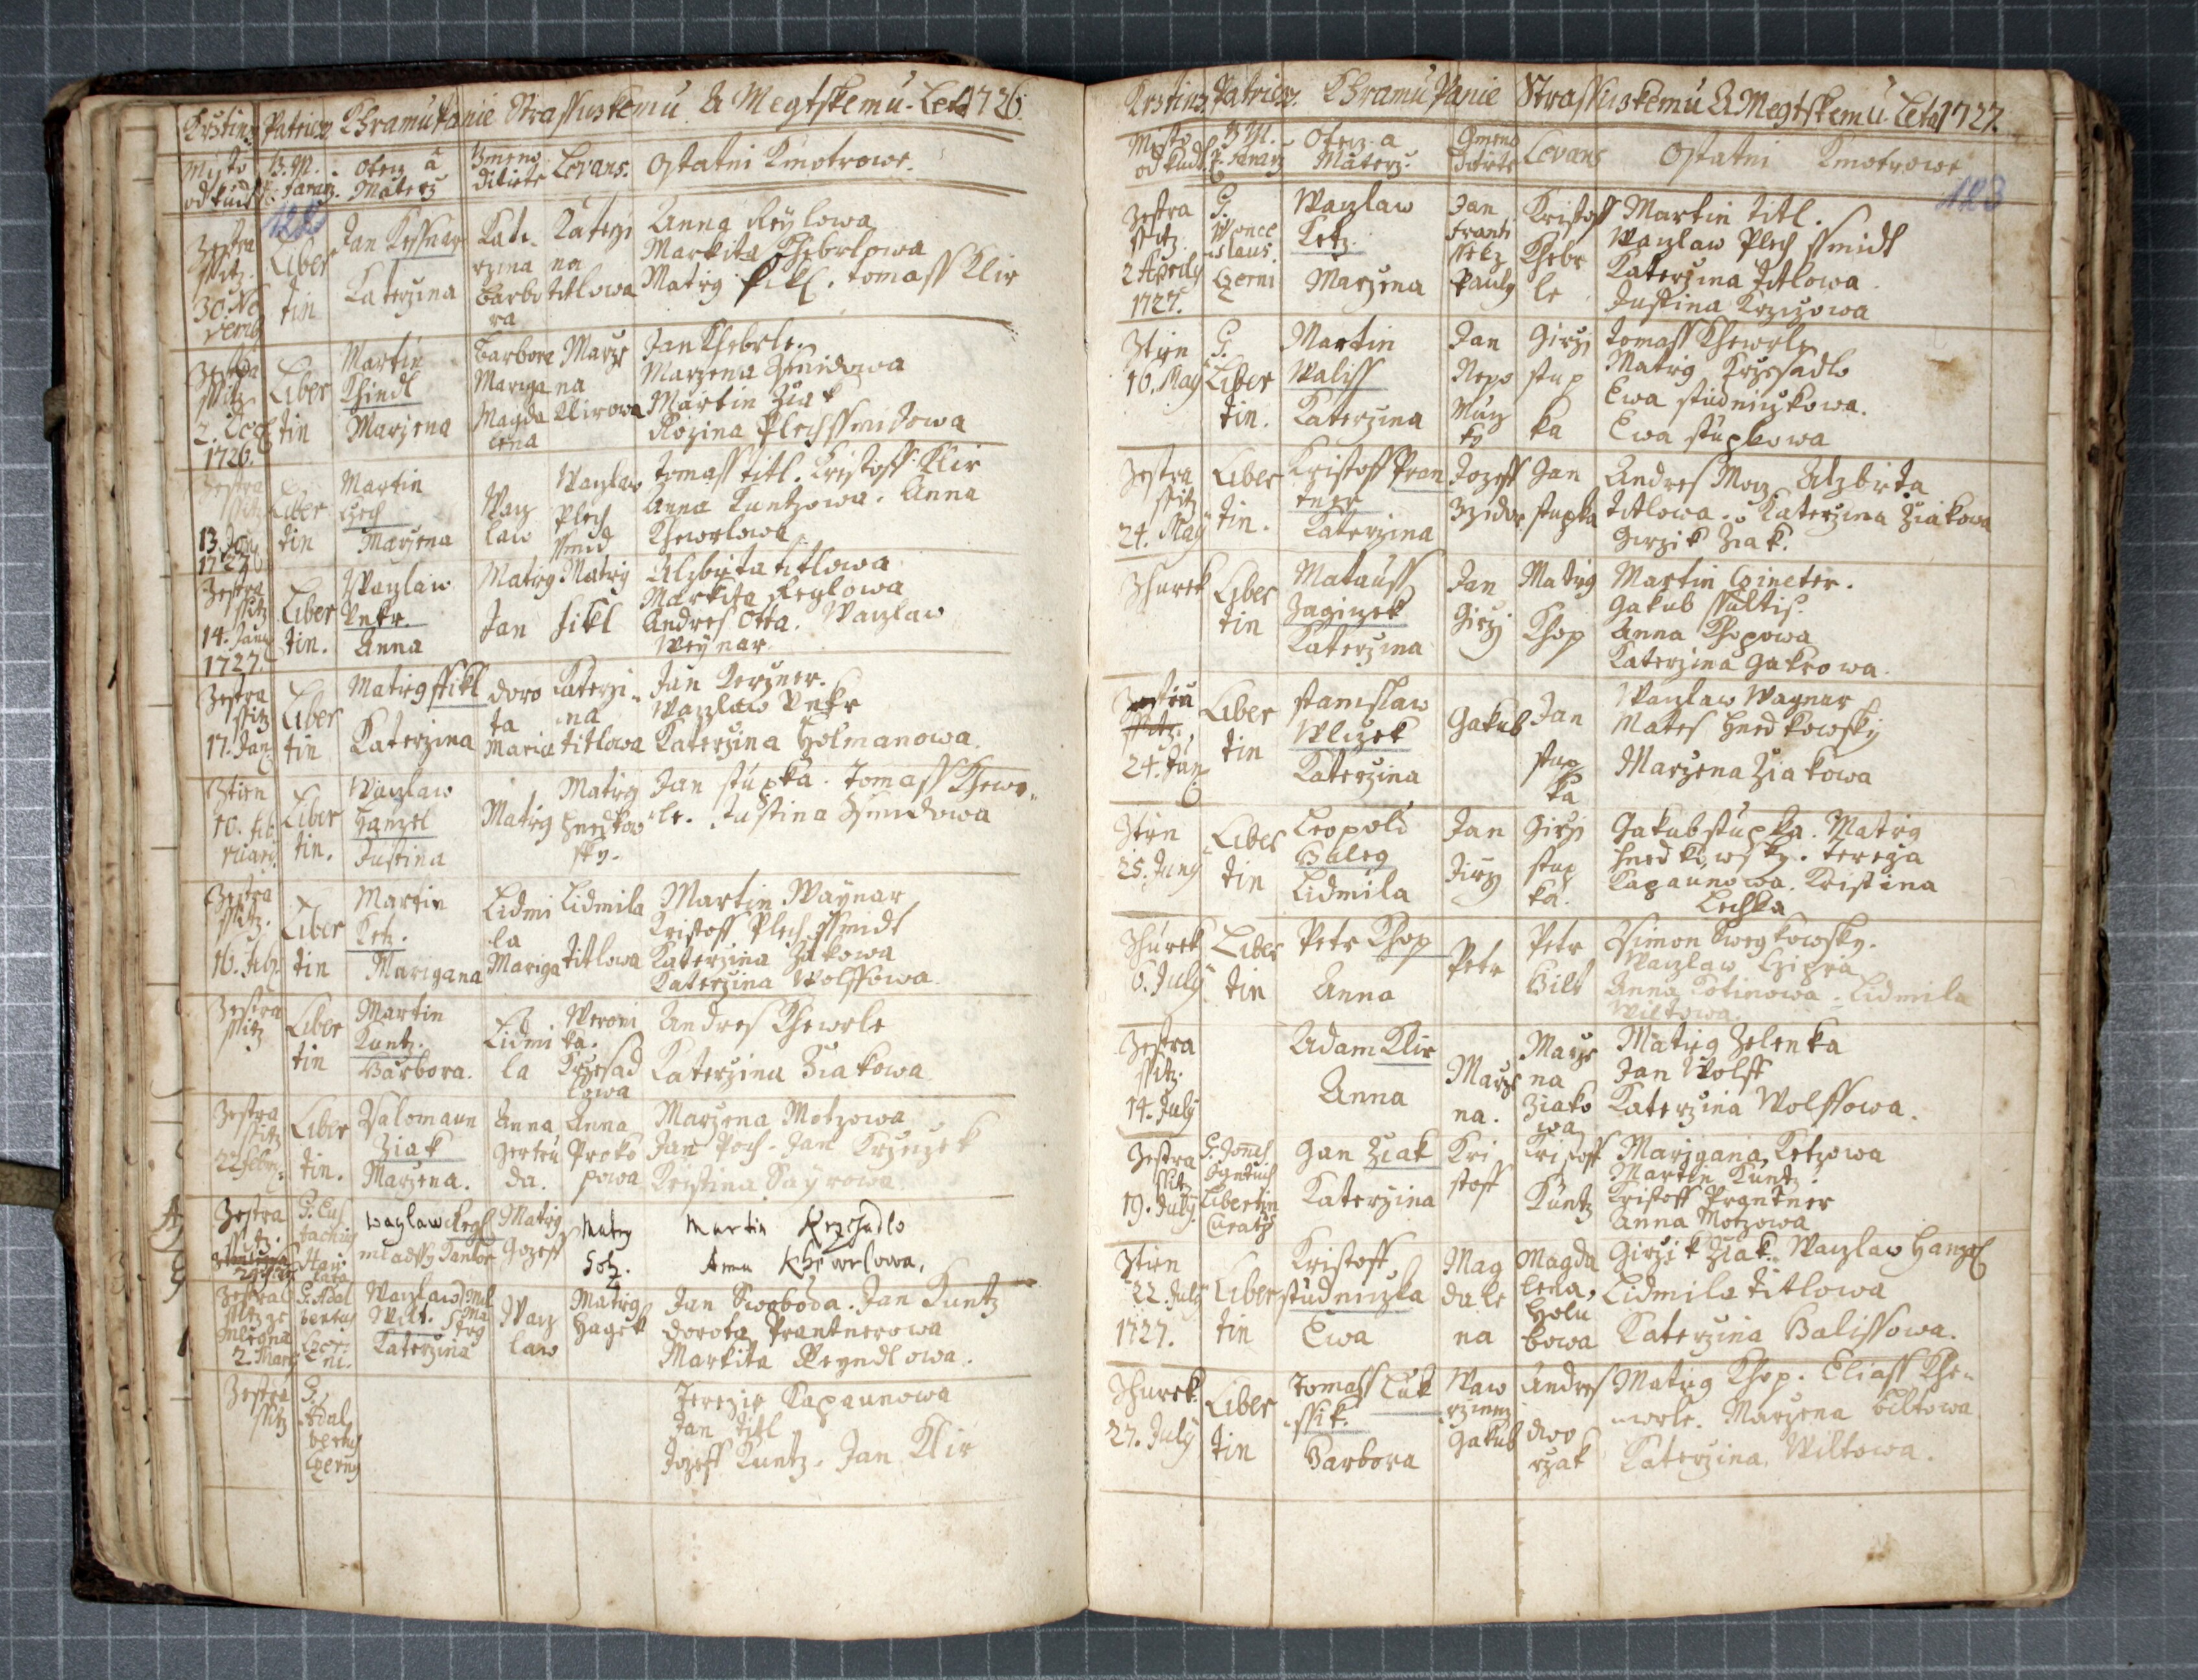 Krstiny Patricy Chramu Panie Strassiczkemu A Megtskemu. Leta 1726
Misto od kud
B. M. P. Fararz.
Otecz a Materz
Zmeno Ditiete
Levans.
Ostatni Kmotrowe.
122
Zestra ssitz. 30. Novemb
Liber tin
Jan Kessnar Katerzina
Kate rzina Barbo ra
Katerzi na titlowa
Anna Reylowa
Markita Khebrlowa
Matieg Sikl. tomass Klir
2. Dec 1726.
Liber tin
Martin Khindl Marzena
Barbora Mariga Magda lena
Marze na Klirowa
Jan Khebrle.
Marzena Zmidowa
Martin Ziak
Rozina Plechssmidowa
Zestra ssitz 13. Jan 1727
Liber tin
Martin Czech Marzena
Wacz law
Waczlaw Plech ssmid
Tomass titl. Kristoff Klir
Anna Kuntzowa. Anna
Khewrlowa
Zestra ssitz 14. Jan 1727.
Liber tin.
Waczlaw Petr. Anna
Matieg Jan
Matieg Sikl
Alzbieta titlowa
Markita Reylowa
Andres Otta. Waczlaw
Weynar.
Zestra ssitz 17. Jan
Liber tin
Matieg ssikl Katerzina
Doro ta Maria
Katerzi na titlowa
Jan Perzner.
Waczlaw Petr
Katerzina Holmanowa.
Ztien 10. Feb ruari.
Liber tin.
Waczlaw Hanzel Justina
Matieg
Matieg Hnedkow sky.
Jan stupka. Tomass Khewr
le. Justina Zmidowa
Zestra ssitz. 16. Feb.
Liber tin
Martin Ketz. Marigana
Lidmi la Mariga
Lidmila titlowa
Martin Waynar
Kristoff Plechssmidt
Katerzina Zakowa
Katerzina Wolffowa.
Zestra ssitz
Liber tin
Martin Kuntz. Barbora.
Lidmi la
Weroni ka. Krzesad lowa
Andres Khewrle
Katerzina Ziakowa
Zestra ssitz 22 Febr.
Liber tin.
Salomaun Ziak Marzena.
Anna Gertru da.
Anna Proko powa
Marzena Motzowa
Jan Poch. Jan Krzyzek
Kristina Sayrowa
Zestra ssitz.
Waczlaw Regl mladssy Kantor
Matieg Gozeff
Matieg Sotz.
Martin Krzesadlo
Anna Khewrlowa,
Zestra ssitz 2. Marty
P. Adal bertus Czer ni.
Waczlaw Wilt. Katerzina
Wacz law
Matieg Hagek
Jan Swoboda. Jan Kuntz
dorota Prantnerowa
Markita Reyndlowa.
Zestra ssitz
P. Adal bertus Czerny
Terezie Kapaunowa
Jan Titl
Jozeff Kuntz. Jan Klir
Krstiny Patricy. Chramu Panie Strassiczkemu A Megtskemu Leta 1727.
Misto od kud
B. M. P. Fararz
Otecz a Materz.
Gmeno Ditiete
Levans
Ostatni Kmotrowe
123
Zestra ssitz. 2 Aprily 1727.
P. Wence slaus Czerni
Waczlaw Ketz. Marzena
Jan Franti ssek Pauly
Kristoff Khebr le
Martin Titl.
Waczlaw Plech ssmidt
Katerzina Titlowa.
Justina Krzizowa
Ztien 16. May
P. Liber tin.
Martin Waliss Katerzina
Jan Nepo muc ky
Girzi stup ka
Tomass Khewrle
Matieg Krzesadlo
Ewa studniczkowa.
Ewa stupkowa
Zestra ssitz 24. May
Liber tin.
Kristoff Pran tner Katerzina
Jozeff Izidor
Gan stupka
Andres Moz Alzbieta
Titlowa. Katerzina Ziakowa
Girzik Ziak.
Zhurek
Liber tin
Matauss Zagiczek Katerzina
Jan Girzi
Matieg Khop
Martin Czineter.
Gakub ssultis.
Anna Khopowa
Katerzina Gakrowa.
24. Jun
Liber tin
Stanislaw Wlczek Katerzina
Gakub
Jan stup ka
Waczlaw Waynar
Mates Hnedkowsky
Marzena Ziakowa
Ztien 25. Juny
Liber tin
Leopold Baleg Lidmila
Jan Jirzy
Girzi stup ka.
Gakub stupka. Matieg
Hnedkowsky. Tereza
Kapaunowa. Kristina
Lechka
Zhurek 6. July
Liber tin
Petr Khop Anna
Petr
Petr Bilt
Simon Swegkowsky.
Waczlaw Czipra
Anna Kotinowa. Lidmila
Wiltowa.
Zestra ssitz. 14. July
Adam Klir Anna
Marze na.
Marze na Ziako wa
Matieg Zelenka
Jan Wolff
Katerzina Wolffowa.
Zestra ssitz 19. July
Libertin Curatus
Gan Ziak Katerzina
Kri stoff
Kristoff Kuntz
Marzgana Ketzowa
Martin Kuntz.
Kristoff Prantner
Anna Motzowa
Ztien 22. July 1727.
Liber tin
Kristoff studniczka Ewa
Mag dale na
Magda lena, Holu bowa
Girzik Ziak. Waczlaw Hanzl
Lidmila titlowa
Katerzina Balissowa.
Zhurek 27. July
Liber tin
Tomass Luk ssik. Barbora
Waw rzinecz Gakub
Andres Dwo rzak
Matieg Khop. Eliass Khe
wrle. Marzena Biltowa
Katerzina Wiltowa.